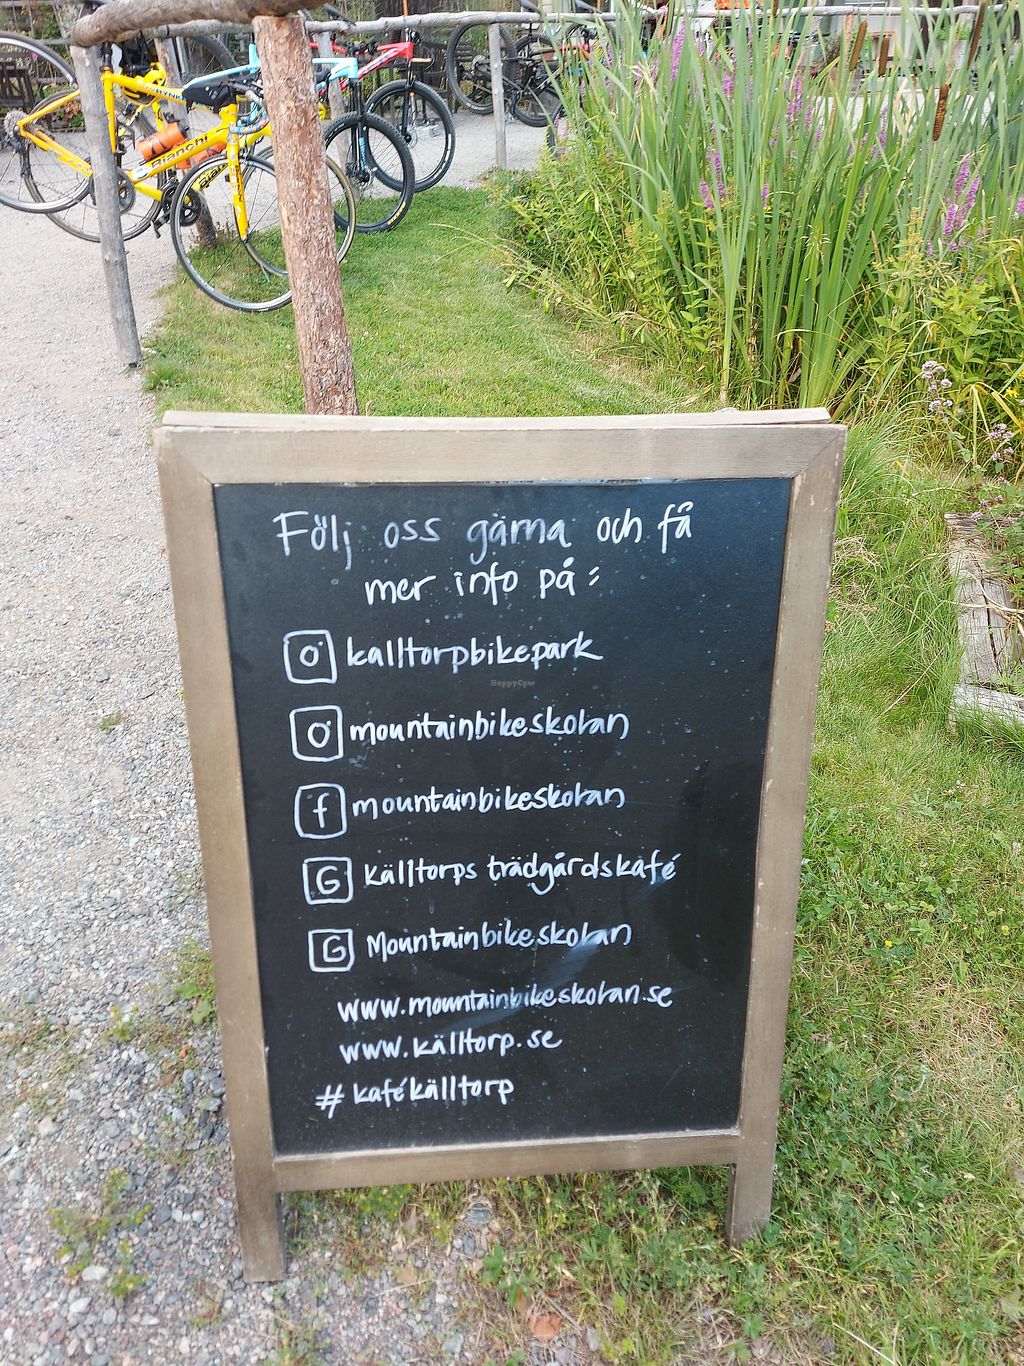 Bianchi
Följ oss gärna och få
mer info på:
kalltorpbikepark
mountainbikeskolan
f mountainbikeskolan
G källtorps trädgårdskafé
G Mountainbikeskolan
www.mountainbikeskolan.se
www.källtorp.se
#kafékälltorp
HappyCow